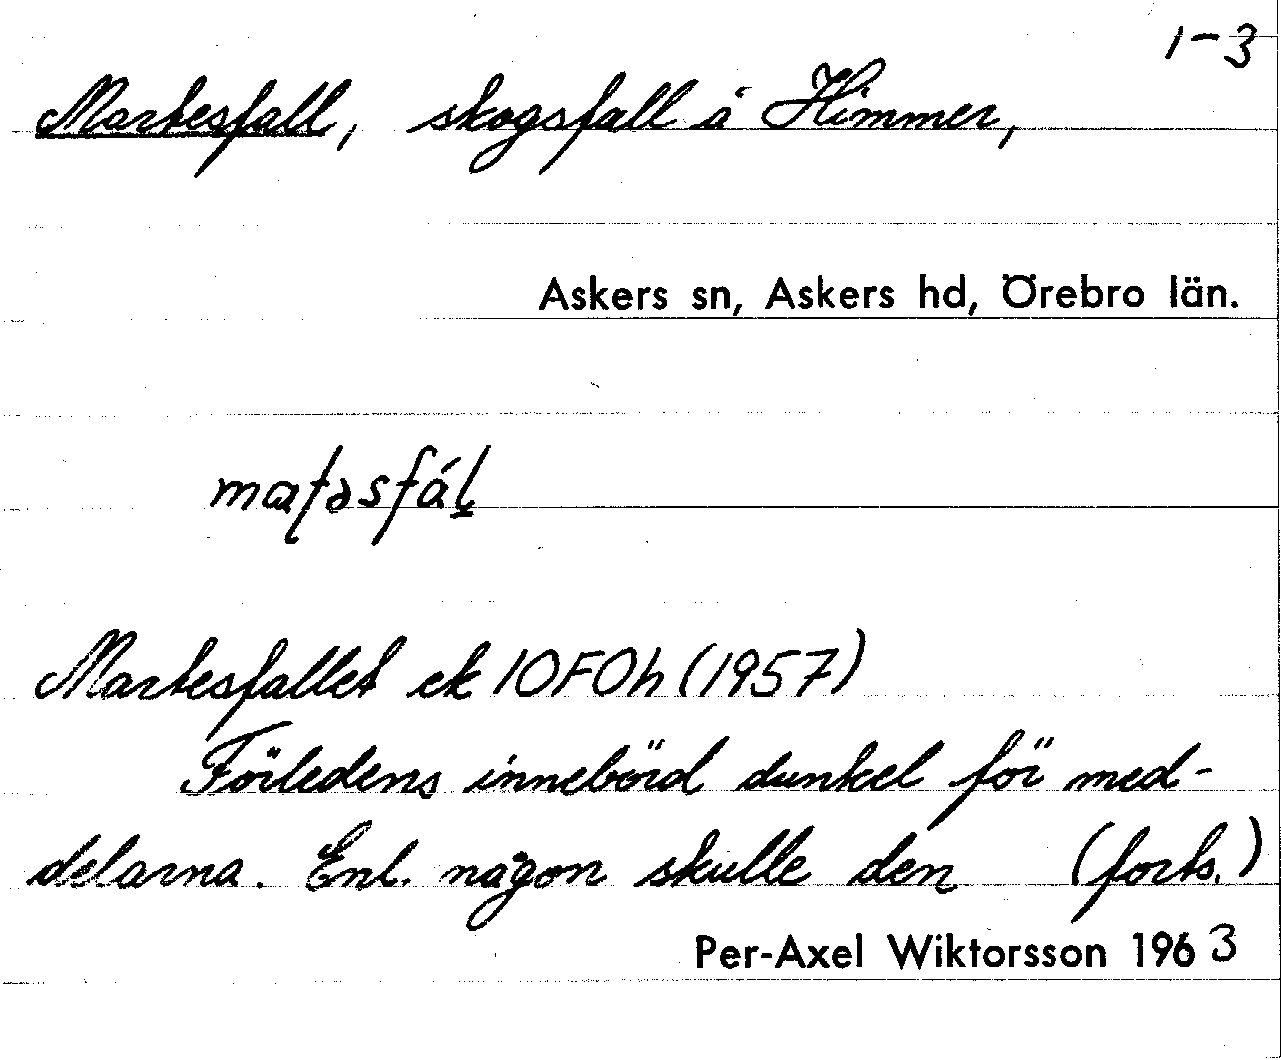 1-3
Martesfall, skogsfall å Himmer,
Askers sn, Askers hd, Örebro län.
maʈəsfáḷ
Martesfallet ek 10F0h (1957)
Förledens innebörd dunkel för med-
delarna. Enl. någon skulle den (forts.)
Per-Axel Wiktorsson 1963